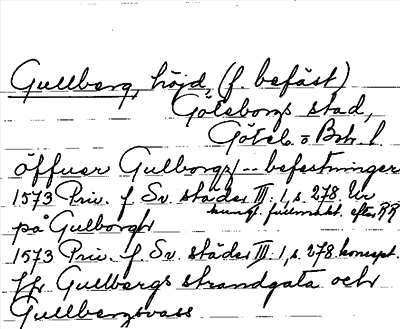 Gullberg, höjd, (f. befäst)
Göteborgs stad,
Göteb. o Boh. l.
öffuer Gulborgs/ -- befestninger
1573 Priv. f Sv. städer III. 1, s. 278. Ur
kungl. fullmakt. efter RR
på Gulborgh
1573 Priv. f Sv. städer III. 1, s. 278. koncept.
Jfr Gullbergs strandgata och
Gullbergsvass